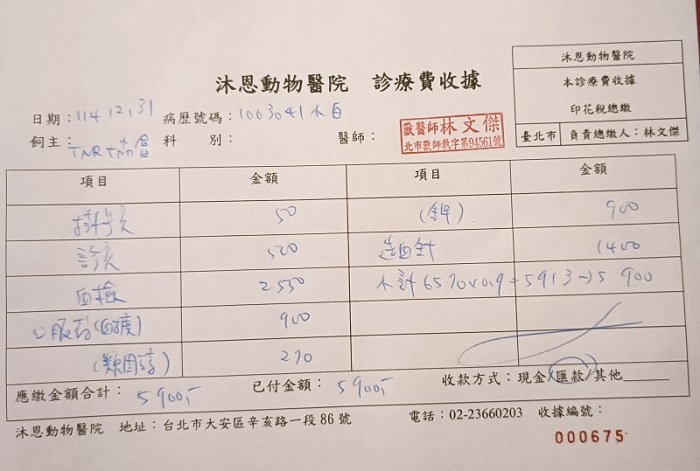 沐恩動物醫院　診療費收據
沐恩動物醫院
本診療費收據
印花稅總繳
臺北市 負責總繳人：林文傑
日期：114.12.31 病歷號碼：1003041 木白
飼主：TNR協會 科別： 醫師： 獸醫師林文傑
北市獸師執字第94561號
項目 金額 項目 金額
掛號費 50 (鉀) 900
診療 500 造血針 1400
血檢 2550 小計6570×0.9=5913→5900
口服药(血擴) 900
(類固醇) 270
應繳金額合計：5900,- 已付金額：5900,- 收款方式：現金/匯款/其他
沐恩動物醫院 地址：台北市大安區辛亥路一段86號 電話：02-23660203 收據編號：
000675